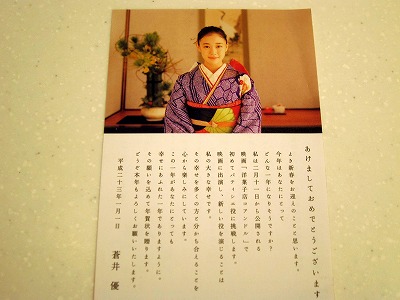 あけましておめでとうございます
よき新春をお迎えのことと思います。
今年はあなたにとって
どんな一年になりそうですか？
私は二月十一日から公開される
映画「洋菓子店コアンドル」で
初めてパティシエ役に挑戦します。
映画に出演し、新しい役を演じることは
私の大きな幸せです。
その幸せを多くの方と分かち合えることを
心から楽しみにしています。
この一年があなたにとっても
幸せにあふれた一年でありますように。
その願いを込めて年賀状を贈ります。
どうぞ本年もよろしくお願いいたします。
平成二十三年一月一日
蒼井 優